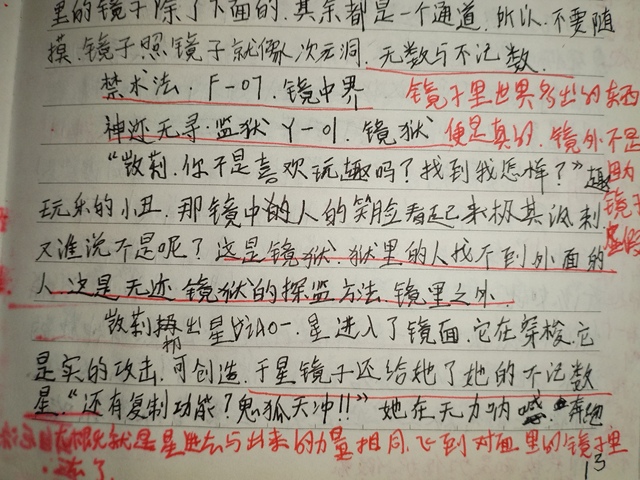 里的镜子除了下面的.其余都是一个通道.所以.不要随
摸.镜子照镜子就像次元洞.无数与不记数.
禁术法.F-07.镜中界
镜子里世界多出的东西
神迹无寻·监狱Y-01.镜狱
便是真的.镜外不是
"散莉.你不是喜欢玩趣吗?找到我怎样?"
因为
玩乐的小丑.那镜中的人的笑脸看起来极其讽刺.
镜子
又谁说不是呢?这是镜狱.狱里的人找不到外面的
是假
人.这是无迹镜狱的探监方法.镜里之外.
散莉扔出星.星进入了镜面.它在穿梭.它
是实的攻击.可创造.于星镜子还给她了她的不记数
星."还有复制功能?鬼狐天冲!!"她在无力呐喊.
就是星进去与出来的力量相同.飞到对面里的镜子里
去了
13